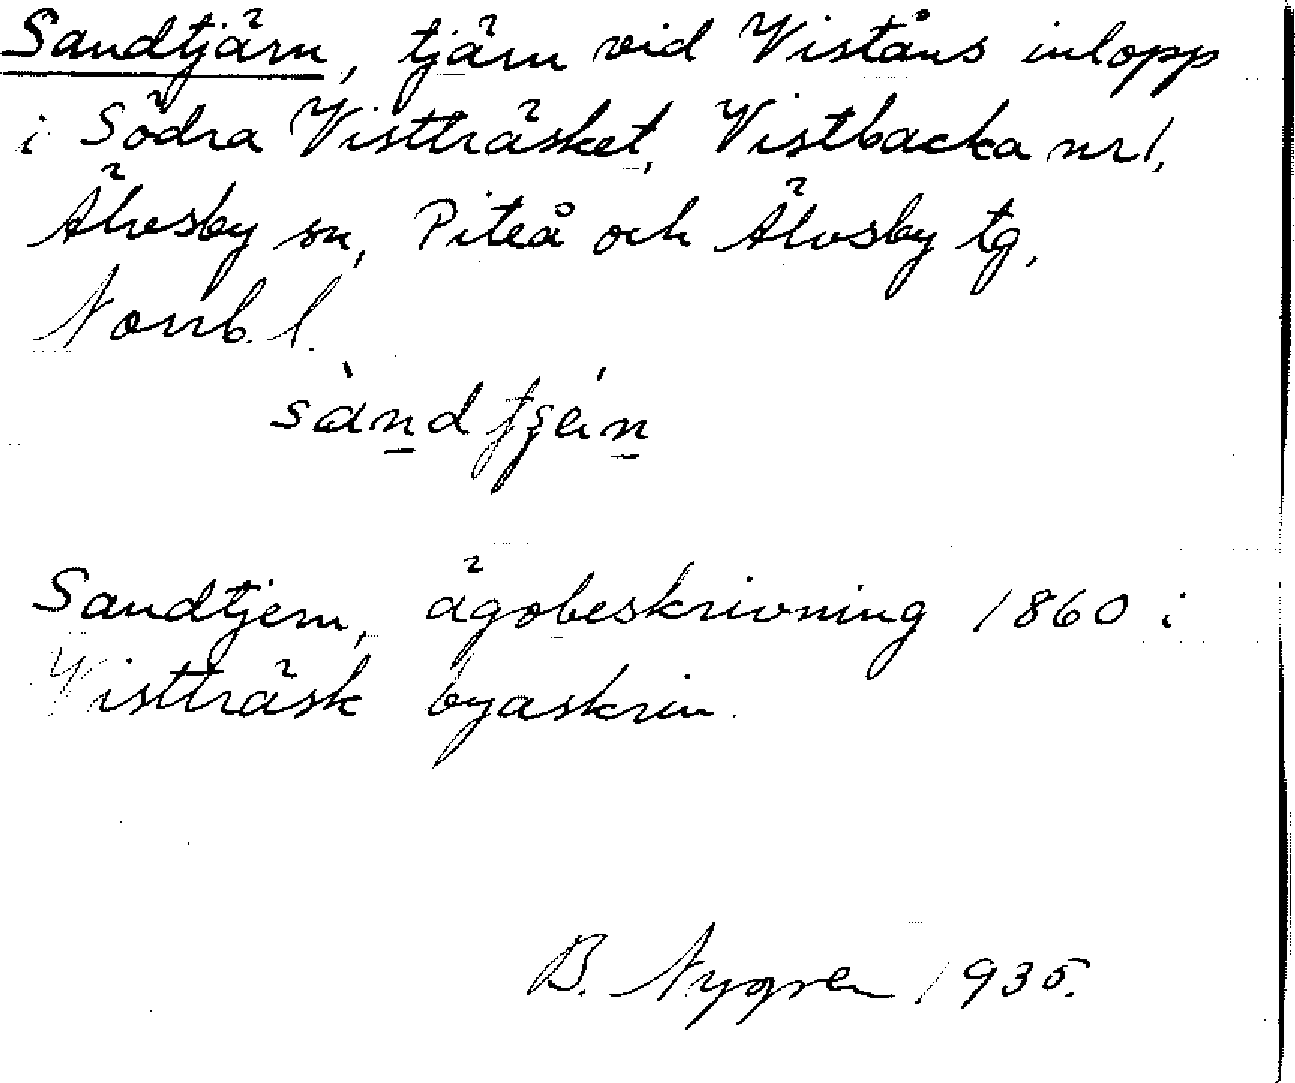 Sandtjärn, tjärn vid Viståns inlopp
i Södra Vistträsket, Vistbacka nr 1,
Älvsby sn, Piteå och Älvsby tg,
Norrb. l.
Sandtjern, ägobeskrivning 1860 i
Vistträsk byaskrin.
B. Nygren 1935.